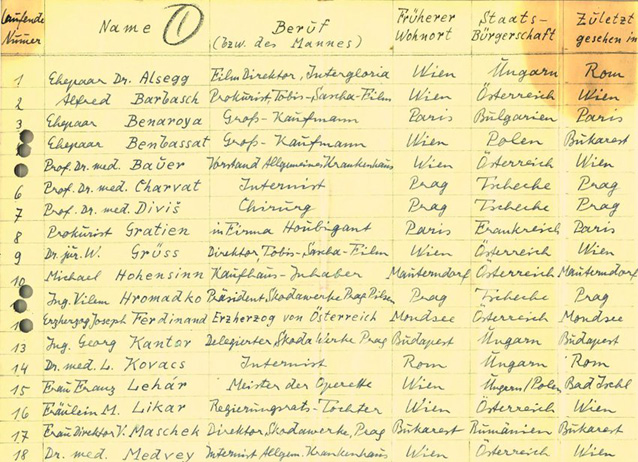 Laufende Numer Name 1 Beruf (bzw. des Mannes) Früherer Wohnort Staats-Bürgerschaft Zuletzt gesehen in
1 Ehepaar Dr. Alsegg Film Direktor, Intergloria Wien Ungarn Rom
2 Alfred Barbasch Prokurist, Tobis-Sascha-Film Wien Österreich Wien
3 Ehepaar Benaroya Groß-Kaufmann Paris Bulgarien Paris
Ehepaar Benbassat Groß-Kaufmann Wien Polen Bukarest
Prof. Dr. med. Bauer Vorstand Allgemeines Krankenhaus Wien Österreich Wien
6 Prof. Dr. med. Charvat Internist Prag Tscheche Prag
7 Prof. Dr. med. Diviš Chirurg Prag Tscheche Prag
8 Prokurist Gratien in Firma Houbigant Paris Frankreich Paris
9 Dr. jur. W. Grüss Direktor, Tobis-Sascha-Film Wien Österreich Wien
10 Michael Hohensinn Kaufhaus-Inhaber Mauterndorf Österreich Mauterndorf
Ing. Vilem Hromadko Präsident Skodawerke Prag Pilsen Prag Tscheche Prag
Erzherzog Joseph Ferdinand Erzherzog von Österreich Mondsee Österreich Mondsee
13 Ing. Georg Kantor Delegierter Skoda Werke Prag Budapest Ungarn Budapest
14 Dr. med. L. Kovacs Internist Rom Ungarn Rom
15 Frau Franz Lehár Meister der Operette Wien Ungarn/Polen Bad Ischl
16 Fräulein M. Likar Regierungsrats-Tochter Wien Österreich Wien
17 Frau Direktor V. Maschek Direktor, Skodawerke, Prag Bukarest Rumänien Bukarest
18 Dr. med. Medvey Internist Allgem. Krankenhaus Wien Österreich Wien